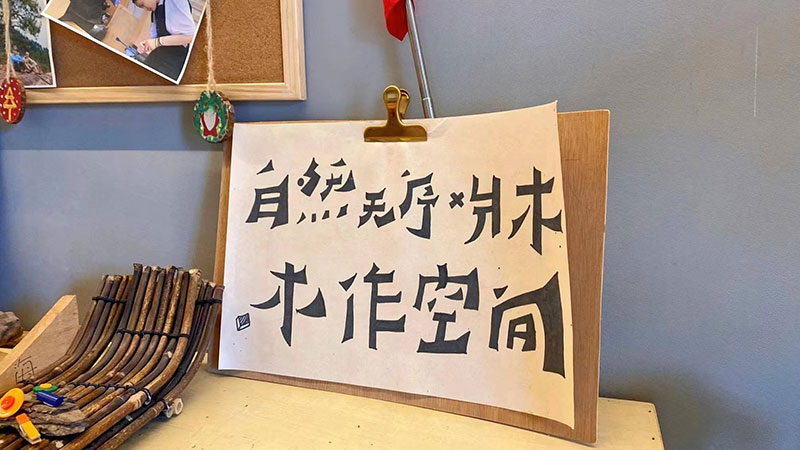 自然无序×爿木
木作空间
海